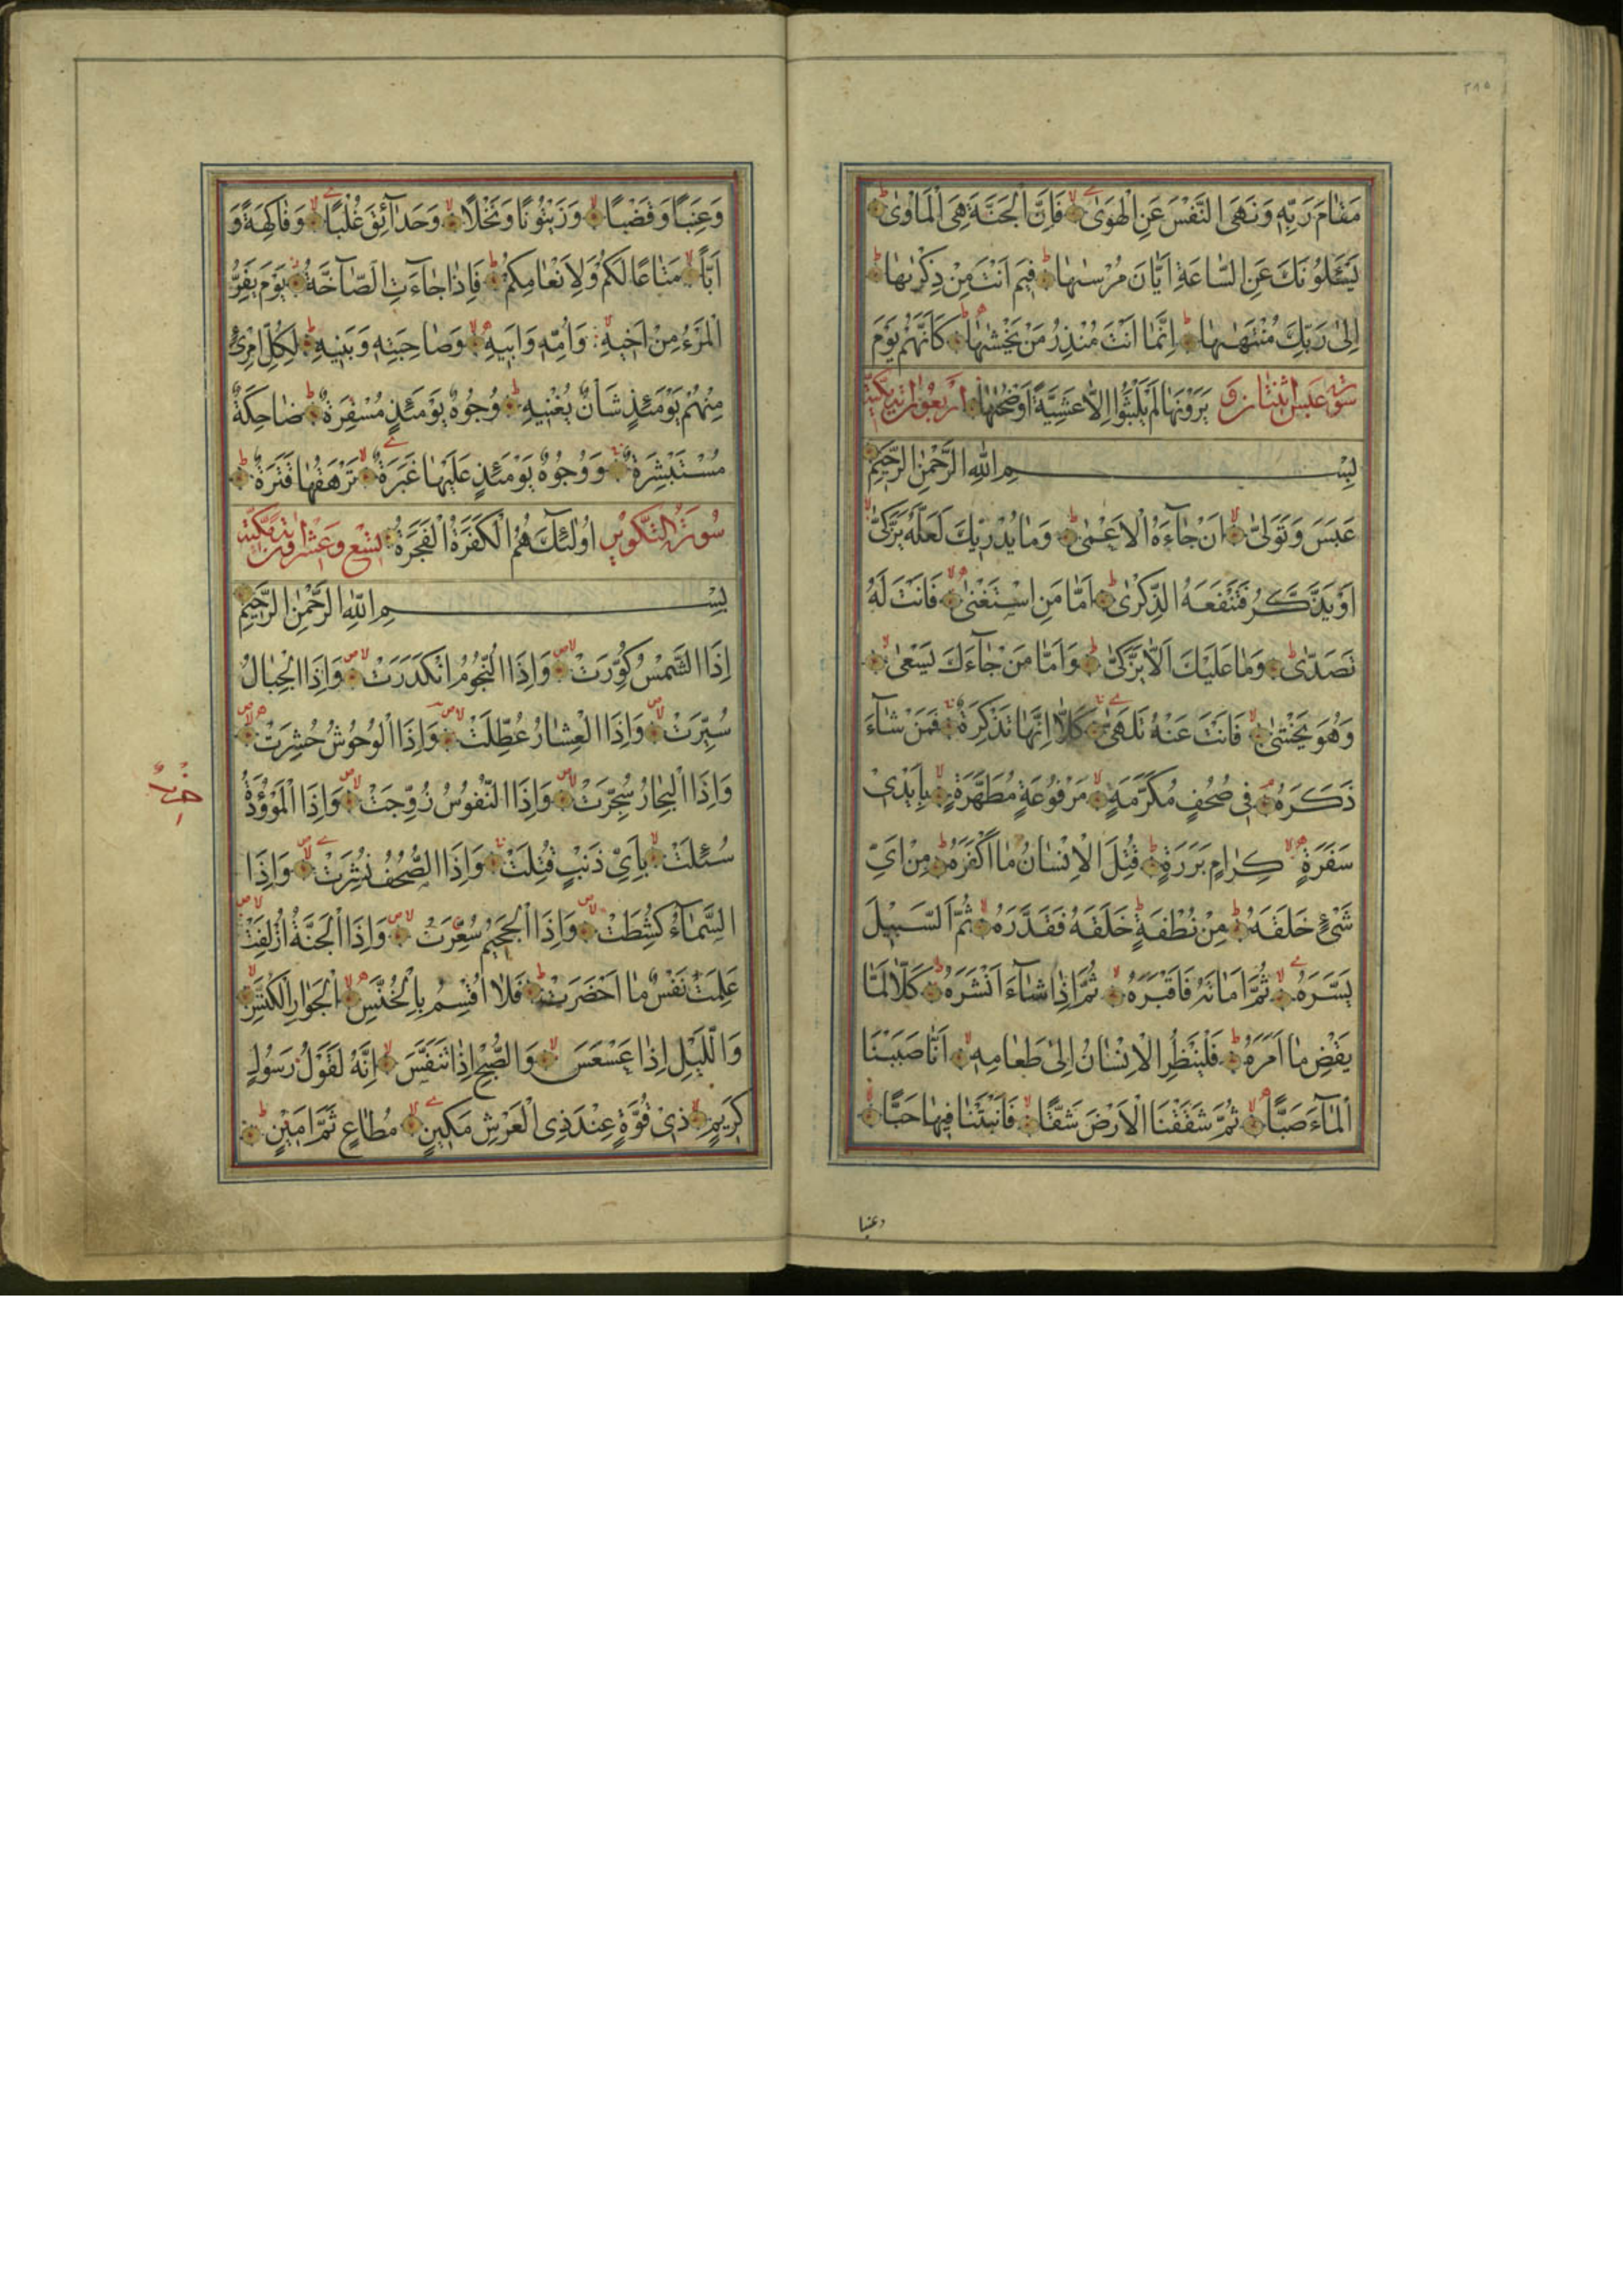 ٢٨٥
مَقَامَ رَبِّهِ وَنَهَى النَّفْسَ عَنِ الْهَوٰىۙ فَاِنَّ الْجَنَّةَ هِىَ الْمَاْوٰىؕ
يَسْـَٔلُونَكَ عَنِ السَّاعَةِ اَيَّانَ مُرْسٰىهَاؕ فِيمَ اَنْتَ مِنْ ذِكْرٰىهَاؕ
اِلٰى رَبِّكَ مُنْتَهٰىهَاؕ اِنَّمَا اَنْتَ مُنْذِرُ مَنْ يَخْشٰىهَاؕ كَاَنَّهُمْ يَوْمَ
سُورَةُ عَبَسَ اثنتان و يَرَوْنَهَا لَمْ يَلْبَثُوا اِلَّا عَشِيَّةً اَوْضُحٰىهَا اربعون اية مكية
بِسْمِ اللّٰهِ الرَّحْمٰنِ الرَّحِيمِ
عَبَسَ وَتَوَلّٰىۙ اَنْ جَآءَهُ الْاَعْمٰىؕ وَمَا يُدْرِيكَ لَعَلَّهُ يَزَّكّٰىۙ
اَوْ يَذَّكَّرُ فَتَنْفَعَهُ الذِّكْرٰىؕ اَمَّا مَنِ اسْتَغْنٰىۙ فَاَنْتَ لَهُ
تَصَدّٰىؕ وَمَا عَلَيْكَ اَلَّا يَزَّكّٰىؕ وَاَمَّا مَنْ جَآءَكَ يَسْعٰىۙ
وَهُوَ يَخْشٰىۙ فَاَنْتَ عَنْهُ تَلَهّٰى كَلَّا اِنَّهَا تَذْكِرَةٌ فَمَنْ شَآءَ
ذَكَرَهُ فِى صُحُفٍ مُكَرَّمَةٍۙ مَرْفُوعَةٍ مُطَهَّرَةٍۙ بِاَيْدِى
سَفَرَةٍۙ كِرَامٍ بَرَرَةٍؕ قُتِلَ الْاِنْسَانُ مَا اَكْفَرَهُؕ مِنْ اَىِّ
شَىْءٍ خَلَقَهُؕ مِنْ نُطْفَةٍ خَلَقَهُ فَقَدَّرَهُۙ ثُمَّ السَّبِيلَ
يَسَّرَهُۙ ثُمَّ اَمَاتَهُ فَاَقْبَرَهُۙ ثُمَّ اِذَا شَآءَ اَنْشَرَهُؕ كَلَّا لَمَّا
يَقْضِ مَا اَمَرَهُؕ فَلْيَنْظُرِ الْاِنْسَانُ اِلٰى طَعَامِهِۙ اَنَّا صَبَبْنَا
الْمَآءَ صَبًّاۙ ثُمَّ شَقَقْنَا الْاَرْضَ شَقًّاۙ فَاَنْبَتْنَا فِيهَا حَبًّاۙ
وعنبا
وَعِنَبًا وَقَضْبًاۙ وَزَيْتُونًا وَنَخْلًاۙ وَحَدَآئِقَ غُلْبًاۙ وَفَاكِهَةً وَ
اَبًّاۙ مَتَاعًا لَكُمْ وَلِاَنْعَامِكُمْؕ فَاِذَا جَآءَتِ الصَّآخَّةُ يَوْمَ يَفِرُّ
الْمَرْءُ مِنْ اَخِيهِۙ وَاُمِّهِ وَاَبِيهِۙ وَصَاحِبَتِهِ وَبَنِيهِؕ لِكُلِّ امْرِئٍ
مِنْهُمْ يَوْمَئِذٍ شَاْنٌ يُغْنِيهِؕ وُجُوهٌ يَوْمَئِذٍ مُسْفِرَةٌ ضَاحِكَةٌ
مُسْتَبْشِرَةٌ وَوُجُوهٌ يَوْمَئِذٍ عَلَيْهَا غَبَرَةٌۙ تَرْهَقُهَا قَتَرَةٌؕ
سُورَةُ التَّكْوِيرِ اُولٰٓئِكَ هُمُ الْكَفَرَةُ الْفَجَرَةُ تسع وعشرون اية مكية
بِسْمِ اللّٰهِ الرَّحْمٰنِ الرَّحِيمِ
اِذَا الشَّمْسُ كُوِّرَتْ وَاِذَا النُّجُومُ انْكَدَرَتْ وَاِذَا الْجِبَالُ
سُيِّرَتْ وَاِذَا الْعِشَارُ عُطِّلَتْ وَاِذَا الْوُحُوشُ حُشِرَتْ
وَاِذَا الْبِحَارُ سُجِّرَتْ وَاِذَا النُّفُوسُ زُوِّجَتْ وَاِذَا الْمَوْؤُدَةُ
سُئِلَتْ بِاَىِّ ذَنْبٍ قُتِلَتْ وَاِذَا الصُّحُفُ نُشِرَتْ وَاِذَا
السَّمَآءُ كُشِطَتْ وَاِذَا الْجَحِيمُ سُعِّرَتْ وَاِذَا الْجَنَّةُ اُزْلِفَتْ
عَلِمَتْ نَفْسٌ مَا اَحْضَرَتْؕ فَلَا اُقْسِمُ بِالْخُنَّسِۙ الْجَوَارِ الْكُنَّسِۙ
وَالَّيْلِ اِذَا عَسْعَسَۙ وَالصُّبْحِ اِذَا تَنَفَّسَۙ اِنَّهُ لَقَوْلُ رَسُولٍ
كَرِيمٍۙ ذِى قُوَّةٍ عِنْدَ ذِى الْعَرْشِ مَكِينٍۙ مُطَاعٍ ثَمَّ اَمِينٍؕ